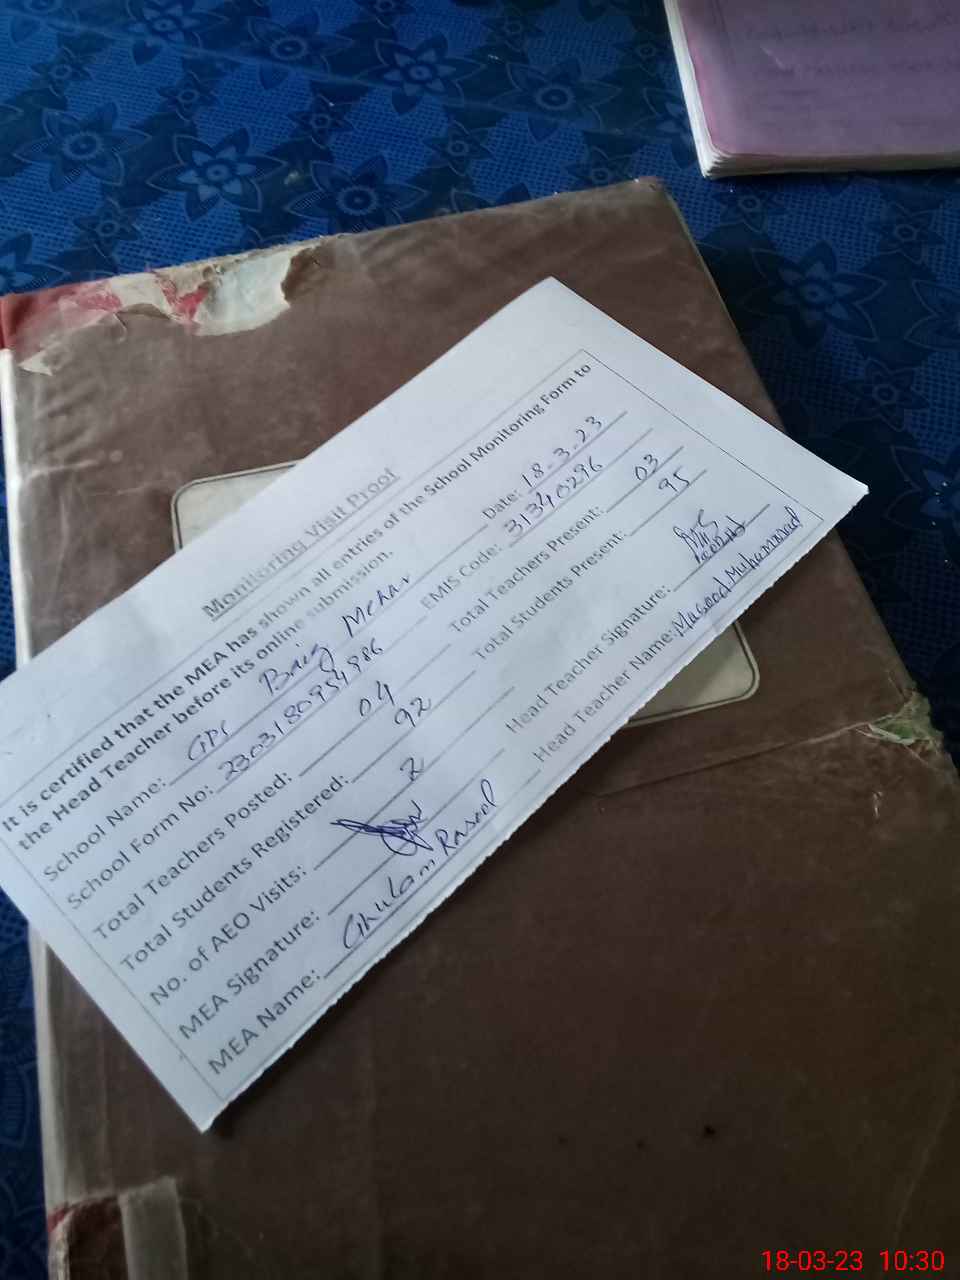 Monitoring Visit Proof
It is certified that the MEA has shown all entries of the School Monitoring Form to
the Head Teacher before its online submission.
School Name: GPS Baig Mehar Date: 18-3-23
School Form No: 2303180954986 EMIS Code: 31340296
Total Teachers Posted: 04 Total Teachers Present: 03
Total Students Registered: 92 Total Students Present: 95
No. of AEO Visits: 2
MEA Signature: Head Teacher Signature:
MEA Name: Ghulam Rasool Head Teacher Name: Masood Muhammad
18-03-23 10:30